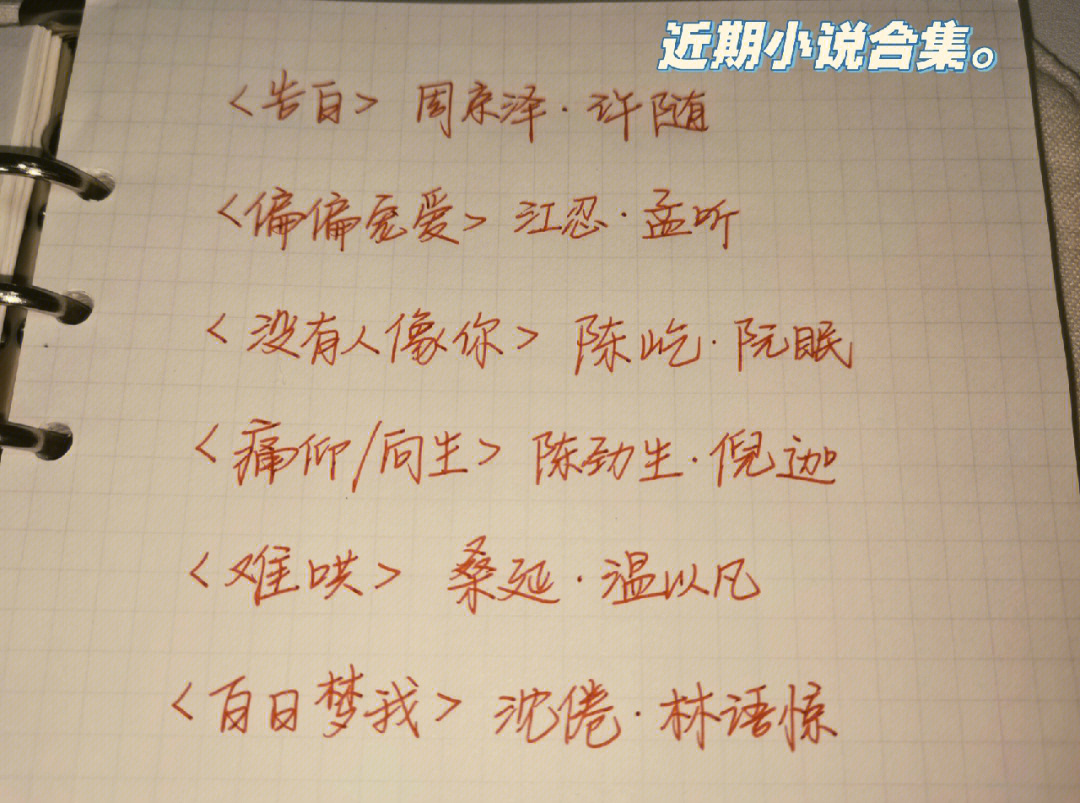 近期小说合集。
<告白> 周京泽·许随
<偏偏宠爱> 江忍·孟听
<没有人像你> 陈屹·阮眠
<痛仰/向生> 陈劲生·倪迦
<难哄> 桑延·温以凡
<白日梦我> 沈倦·林语惊